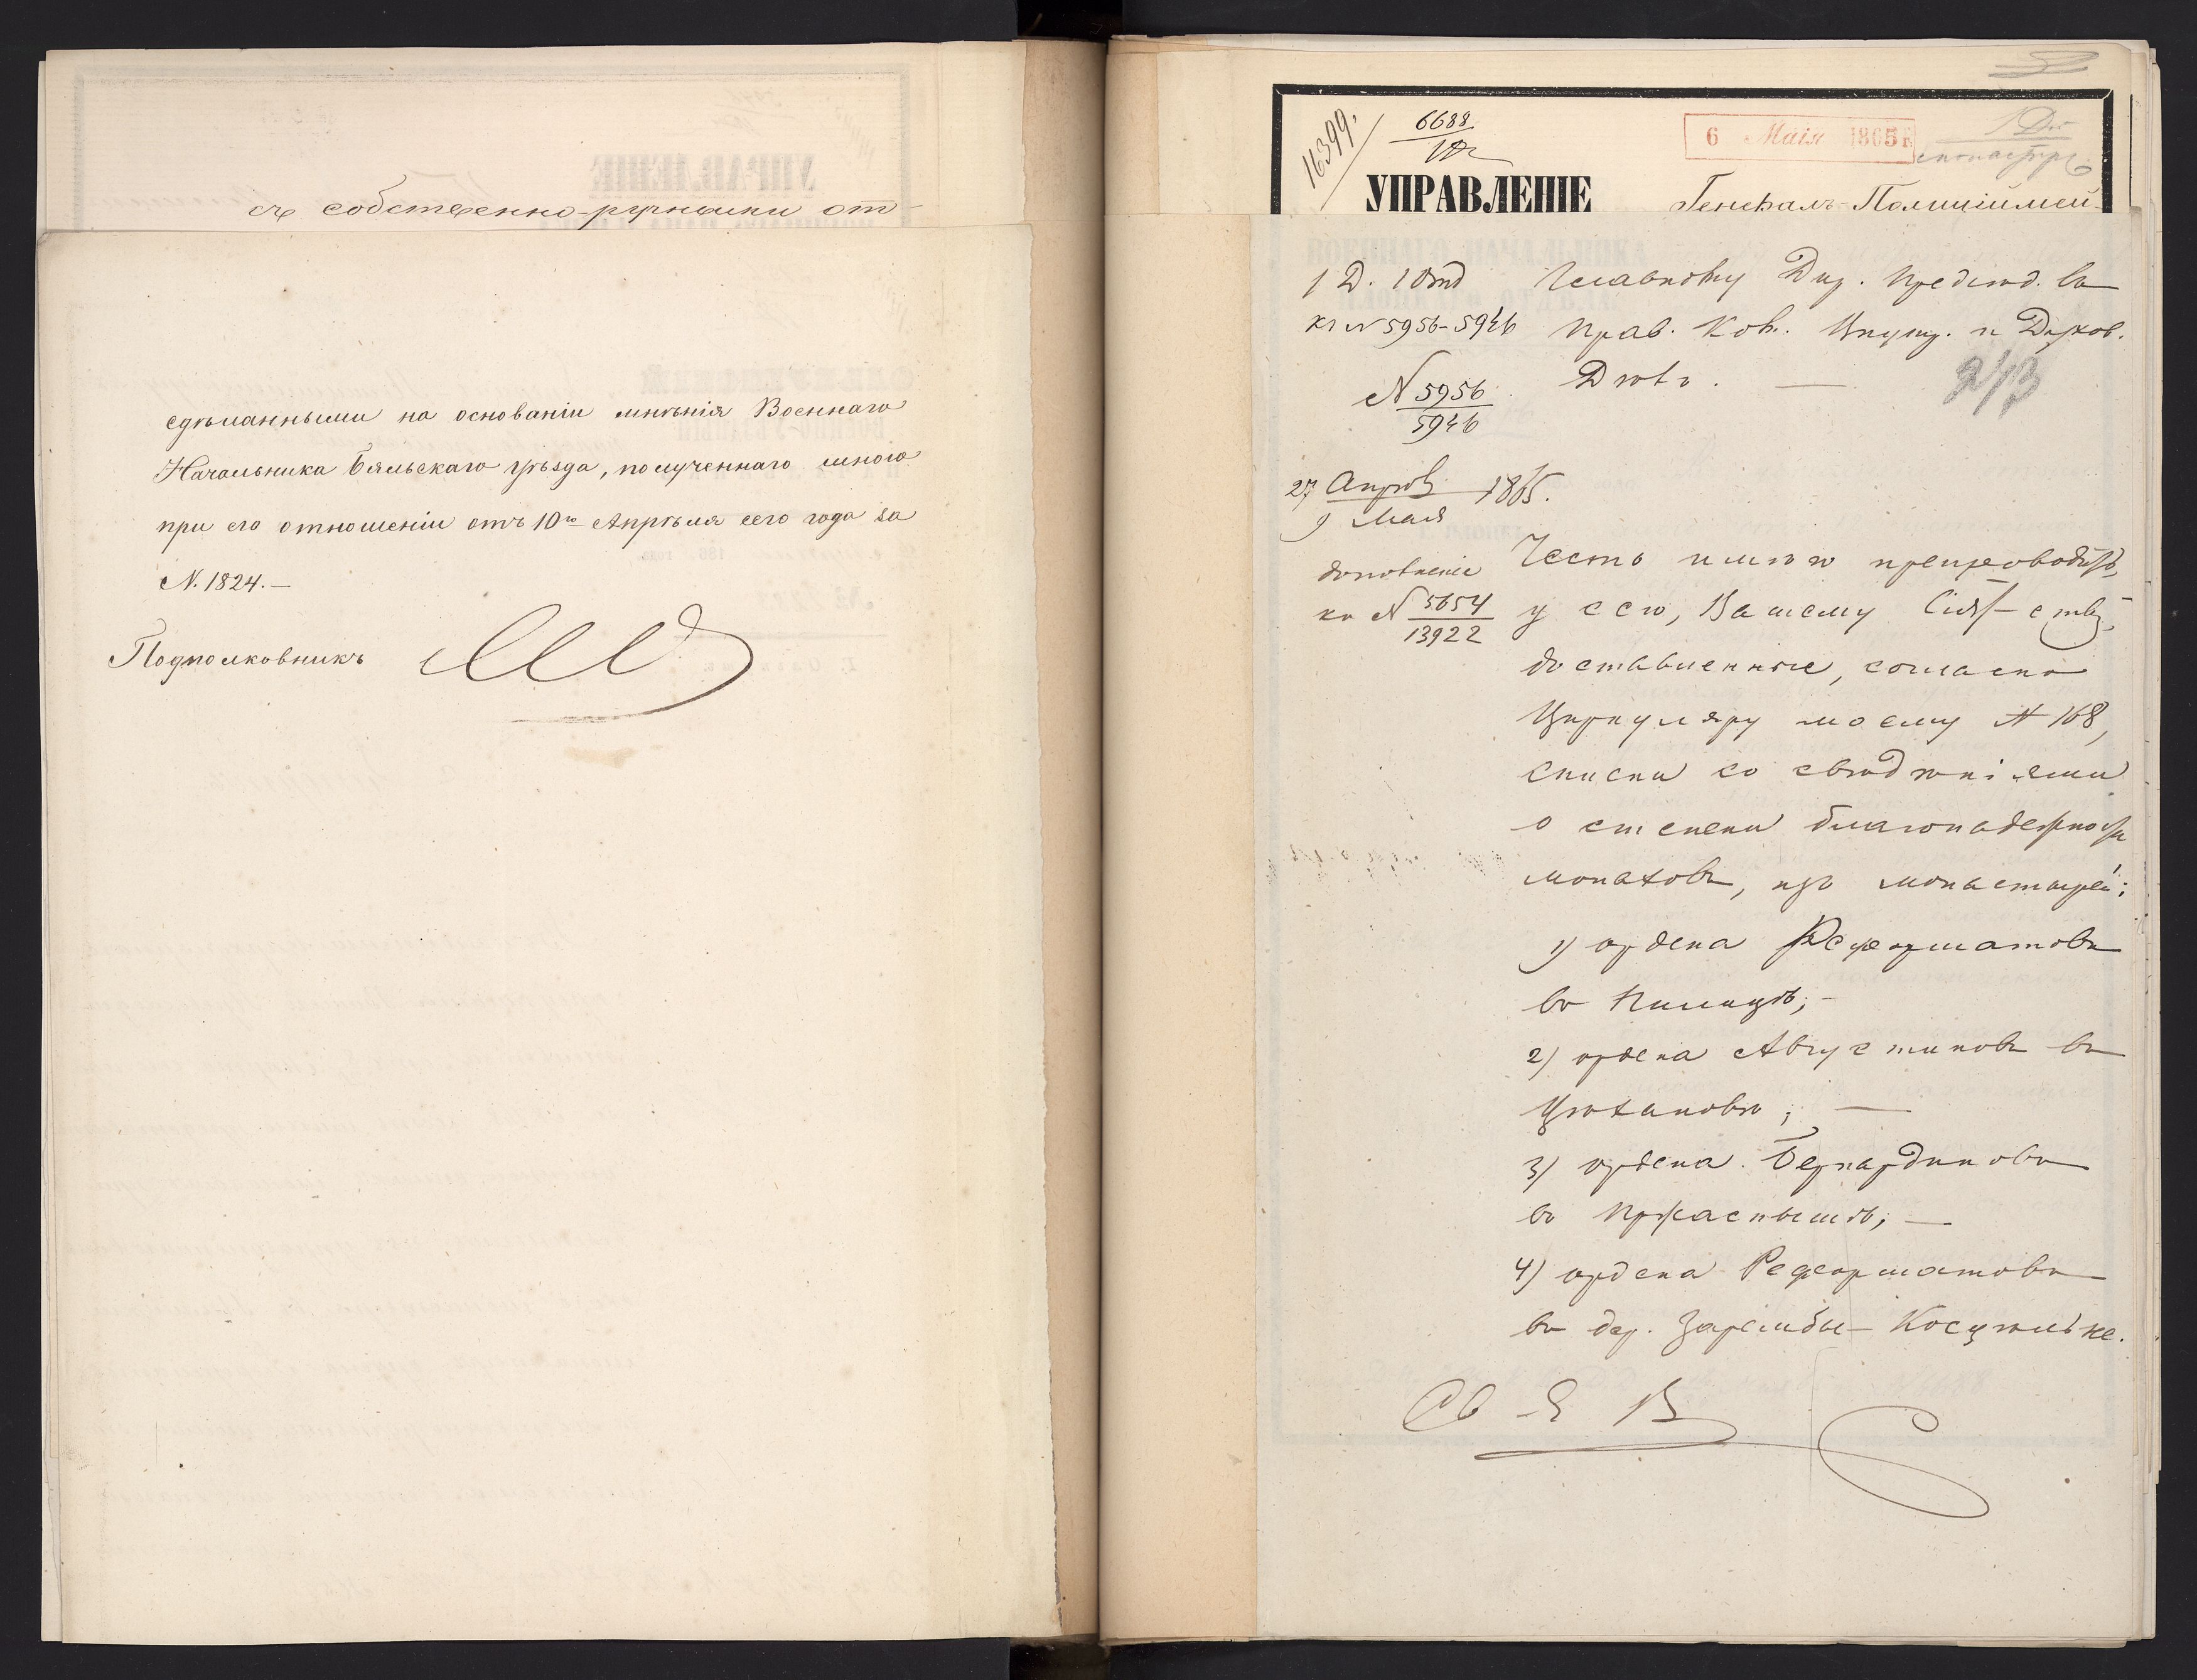 съ собственно-ручными от-
сдѣланными на основаніи мнѣнія Военнаго
Начальника Бяльскаго уѣзда, полученнаго мною
при его отношеніи отъ 10го Апрѣля сего года за
N. 1824.—
Подполковникъ
16399.
6688
6 Маія 1865 г.
УПРАВЛЕНІЕ
Генералъ-Полиціймей-
1 Д. 1 Отд
къ N 5956-5946
N 5956
5946
27 Апрѣл 1865.
9 Мая
Главному Дир. Предсѣд. въ
Прав. Ком. Внутр. и Духов.
Дѣлъ. —
243
дополненіе
къ N 5654
13922
Честь имѣю препроводить,
у сего, Вашему Сіят-ству,
доставленные, согласно
Циркуляру моему N 168,
списки со свѣдѣніями
о степени благонадежности
монаховъ, изъ монастырей:
1) ордена Реформатовъ
въ Пилицѣ; —
2) ордена Августиновъ въ
Цѣхановѣ; —
3) ордена Бернардиновъ
въ Пржаснышѣ; —
4) ордена Реформатовъ
въ дер. Зарембы-Косцѣльне.